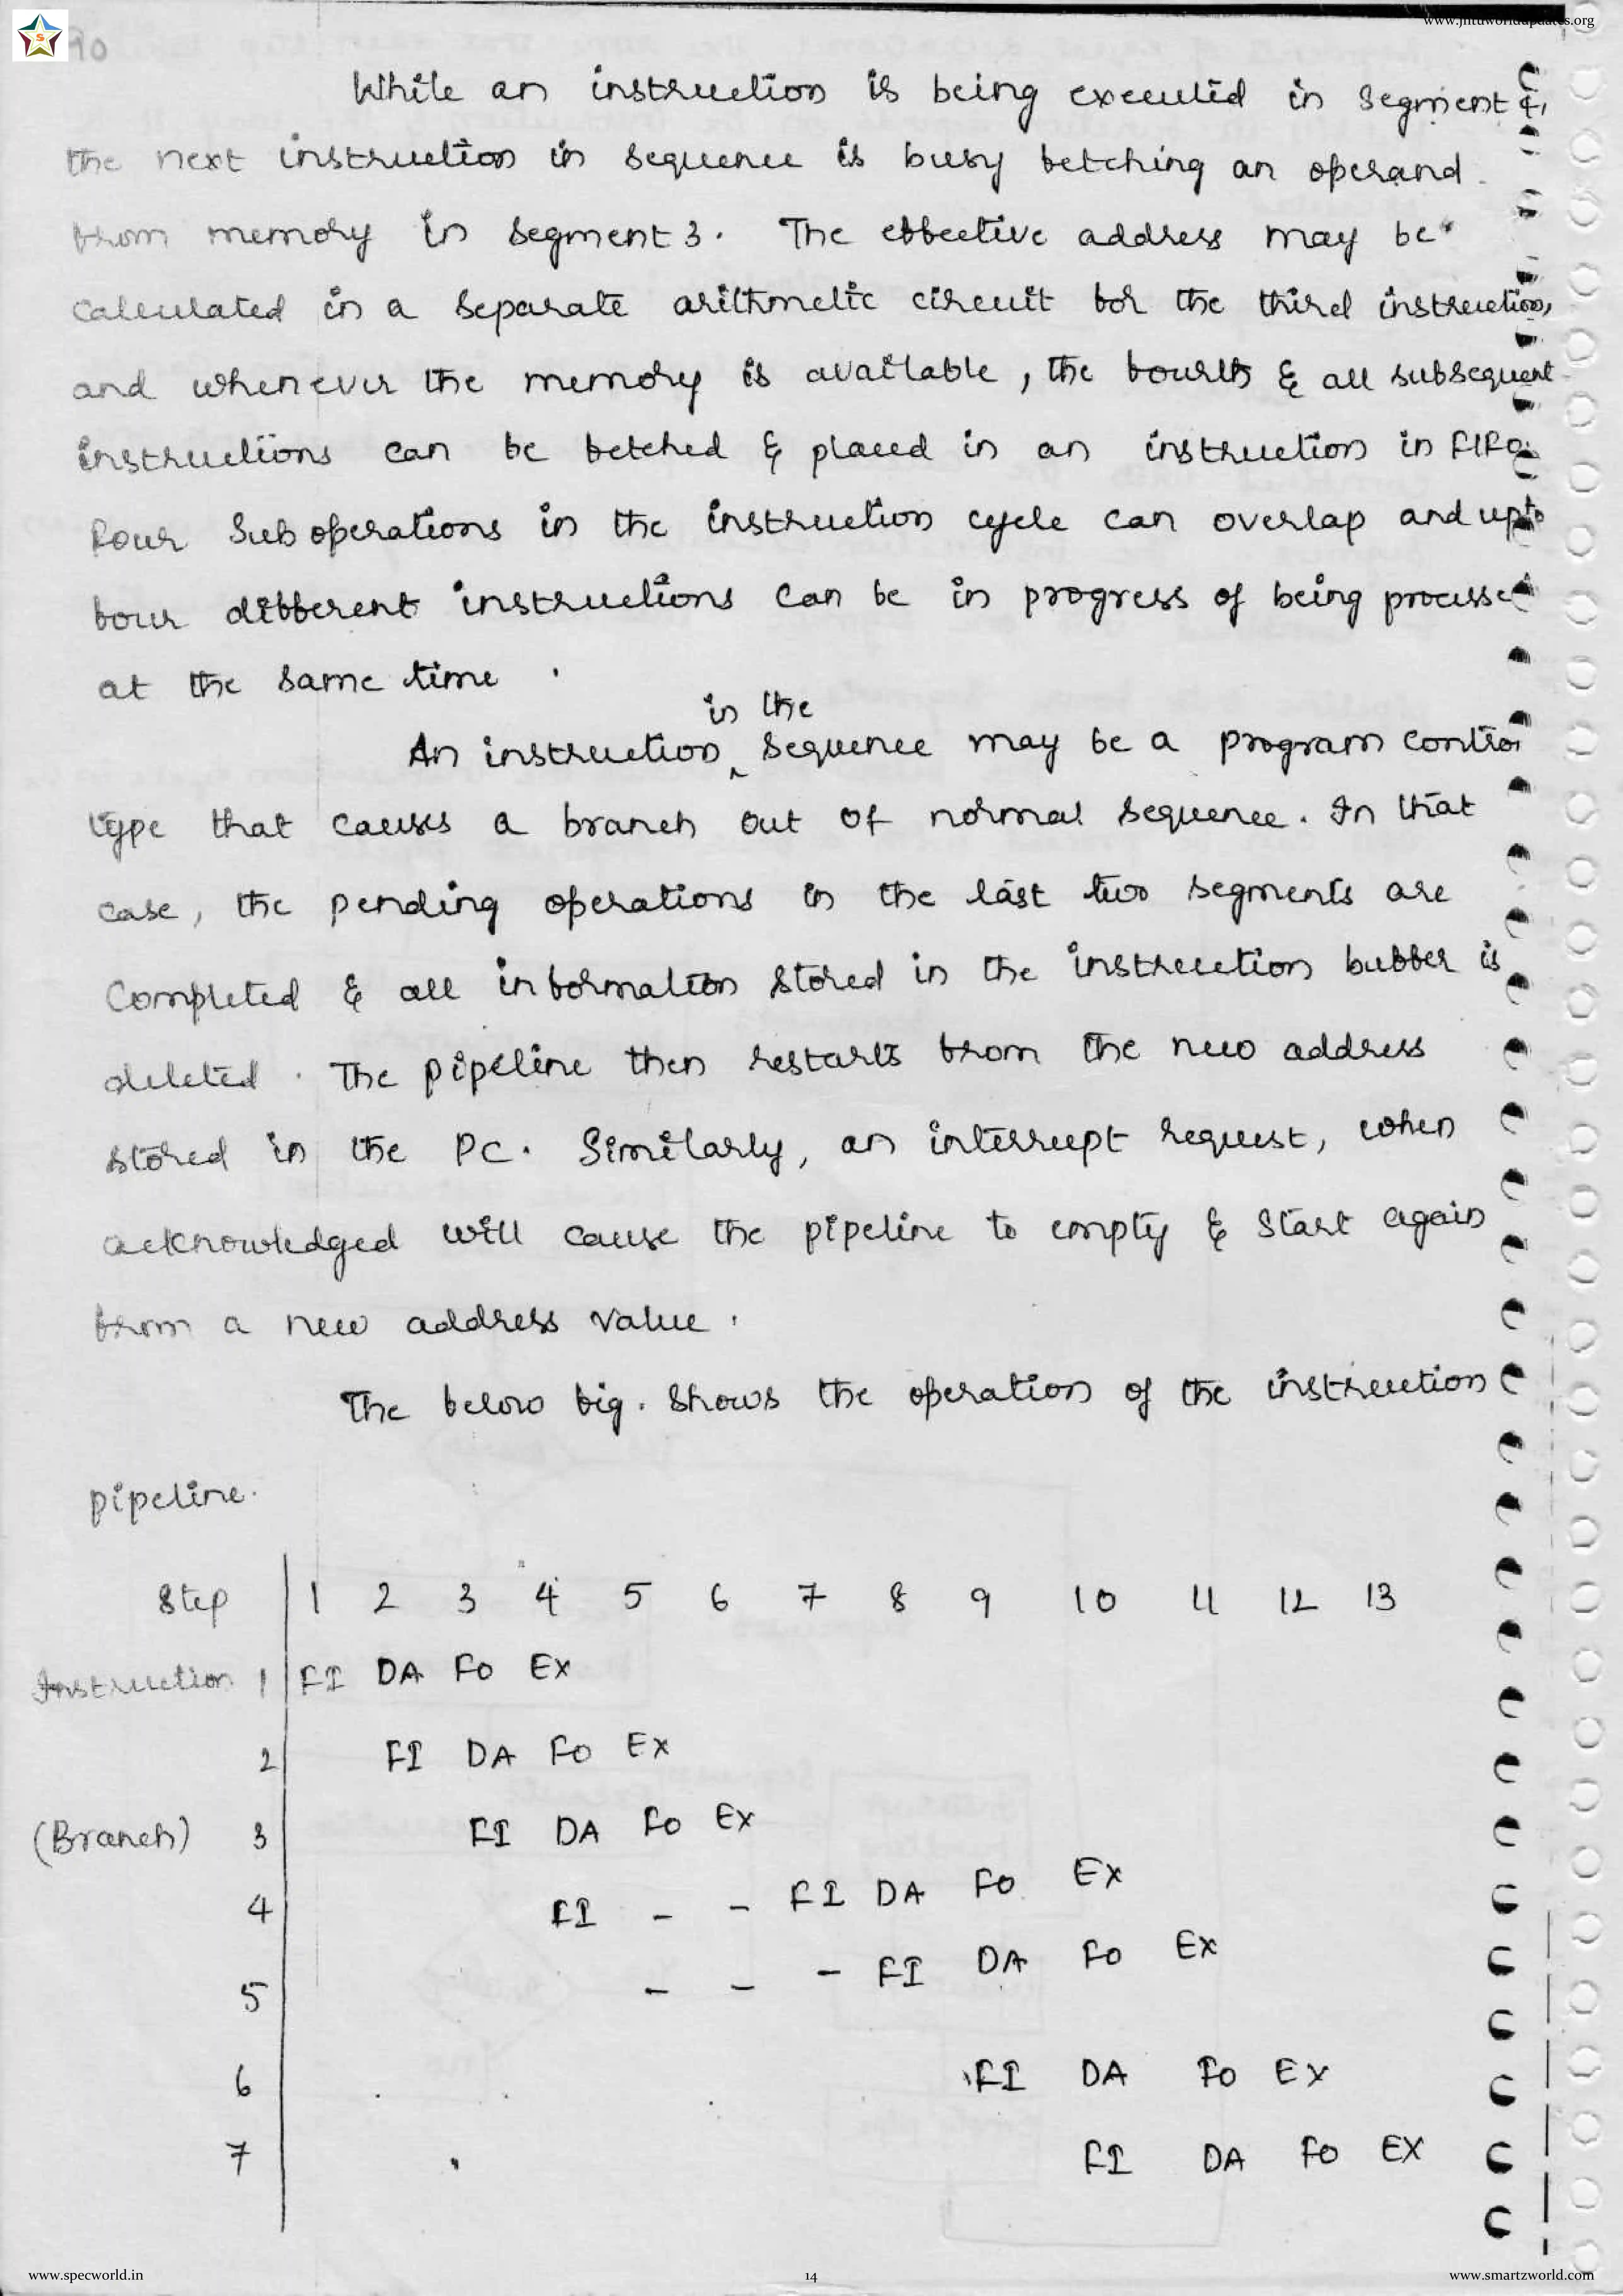 www.jntuworldupdates.org
90
While an instruction is being executed in segment 4,
the next instruction in sequence is busy fetching an operand
from memory in segment 3. The effective address may be
calculated in a separate arithmetic circuit for the third instruction,
and whenever the memory is available, the fourth & all subsequent
instructions can be fetched & placed in an instruction in FIFO.
Four Sub operations in the instruction cycle can overlap and upto
four different instructions can be in progress of being processed
at the same time.
in the
An instruction ^ sequence may be a program control
type that causes a branch out of normal sequence. In that
case, the pending operations in the last two segments are
completed & all information stored in the instruction buffer is
deleted. The pipeline then restarts from the new address
stored in the PC. Similarly, an interrupt request, when
acknowledged will cause the pipeline to empty & start again
from a new address value.
The below fig. shows the operation of the instruction
pipeline.
Step 1 2 3 4 5 6 7 8 9 10 11 12 13
Instruction 1 FI DA FO EX
2 FI DA FO EX
(Branch) 3 FI DA FO EX
4 FI - - FI DA FO EX
5 - - - FI DA FO EX
6 FI DA FO EX
7 FI DA FO EX
www.specworld.in 14 www.smartzworld.com